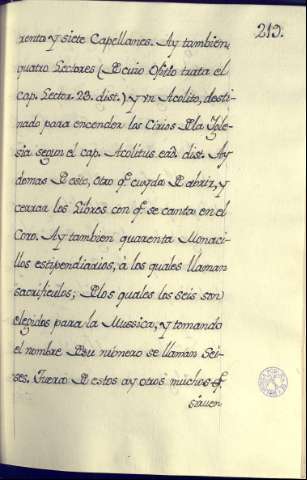 213.
renta y siete Capellanes. Ay tambien,
quatro Lectores (De cuio Ofiçio trata el
cap. Lector. 23. dist.) y vn Acolito, desti-
nado para encender los Cirios De la Igle-
sia segun el cap. Acolitus ead. dist. Ay
demas De esto, otro q̃ cuyda De abrir, y
cerrar los Libros con q̃ se canta en el
Coro. Ay tambien quarenta Monaci-
llos estipendiarios, à los quales llaman
sacrificulos; De los quales los seis son
elegidos para la Mussica, y tomando
el nombre De su número se llaman Sei-
ses. Fuera De estos ay otros muchos q̃
siruen